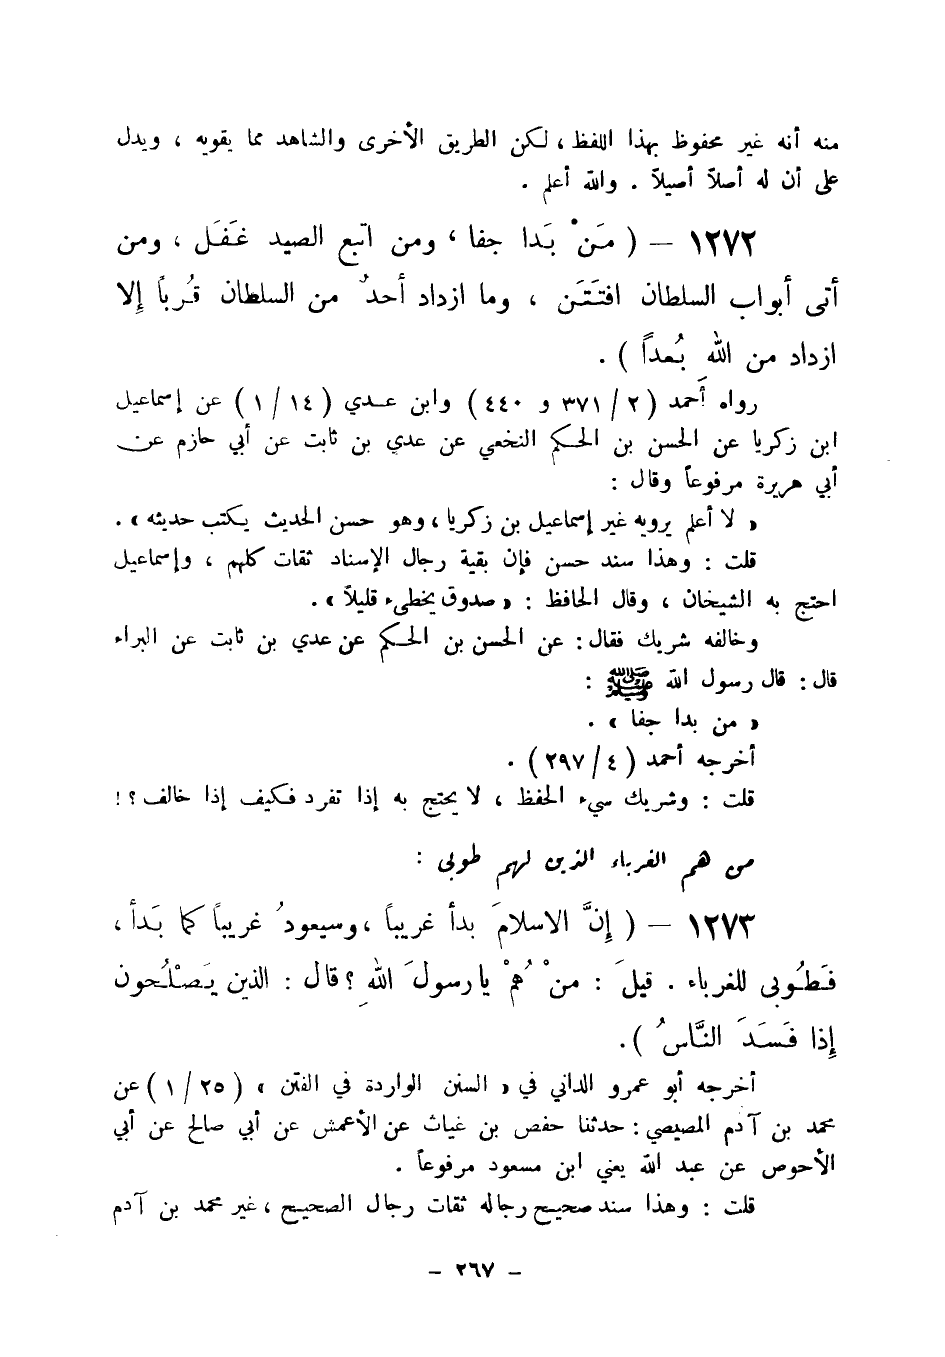 منه أنه غير محفوظ بهذا اللفظ ، لكن الطريق الأخرى والشاهد مما يقويه ، ويدل
على أن له أصلاً أصيلاً . والله أعلم .
١٢٧٢ – ( مَنْ بَدا جفا ، ومن اتبع الصيد غَفَل ، ومن
أتى أبواب السلطان افتَتَن ، وما ازداد أحدٌ من السلطان قُرباً إلا
ازداد من اللهِ بُعداً ) .
رواه أحمد ( ٢ / ٣٧١ و ٤٤٠ ) وابن عدي ( ١٤ / ١ ) عن إسماعيل
ابن زكريا عن الحسن بن الحكم النخعي عن عدي بن ثابت عن أبي حازم عن
أبي هريرة مرفوعاً وقال :
« لا أعلم يرويه غير إسماعيل بن زكريا ، وهو حسن الحديث يكتب حديثه » .
قلت : وهذا سند حسن فإن بقية رجال الإسناد ثقات كلهم ، وإسماعيل
احتج به الشيخان ، وقال الحافظ : « صدوق يخطىء قليلاً » .
وخالفه شريك فقال : عن الحسن بن الحكم عن عدي بن ثابت عن البراء
قال : قال رسول الله ﷺ :
« من بدا جفا » .
أخرجه أحمد ( ٤ / ٢٩٧ ) .
قلت : وشريك سيء الحفظ ، لا يحتج به إذا تفرد فكيف إذا خالف ؟ !
من هم الغرباء الذين لهم طوبى :
١٢٧٣ – ( إنَّ الاسلامَ بدأ غريباً ، وسيعودُ غريباً كما بَدأ ،
فَطُوبى للغرباء . قيلَ : منْ هُمْ يا رسولَ اللهِ ؟ قال : الذين يَصْلُحون
إذا فَسَدَ النَّاسُ ) .
أخرجه أبو عمرو الداني في « السنن الواردة في الفتن » ( ٢٥ / ١ ) عن
محمد بن آدم المصيصي : حدثنا حفص بن غياث عن الأعمش عن أبي صالح عن أبي
الأحوص عن عبد الله يعني ابن مسعود مرفوعاً .
قلت : وهذا سند صحيح رجاله ثقات رجال الصحيح ، غير محمد بن آدم
- ٢٦٧ -